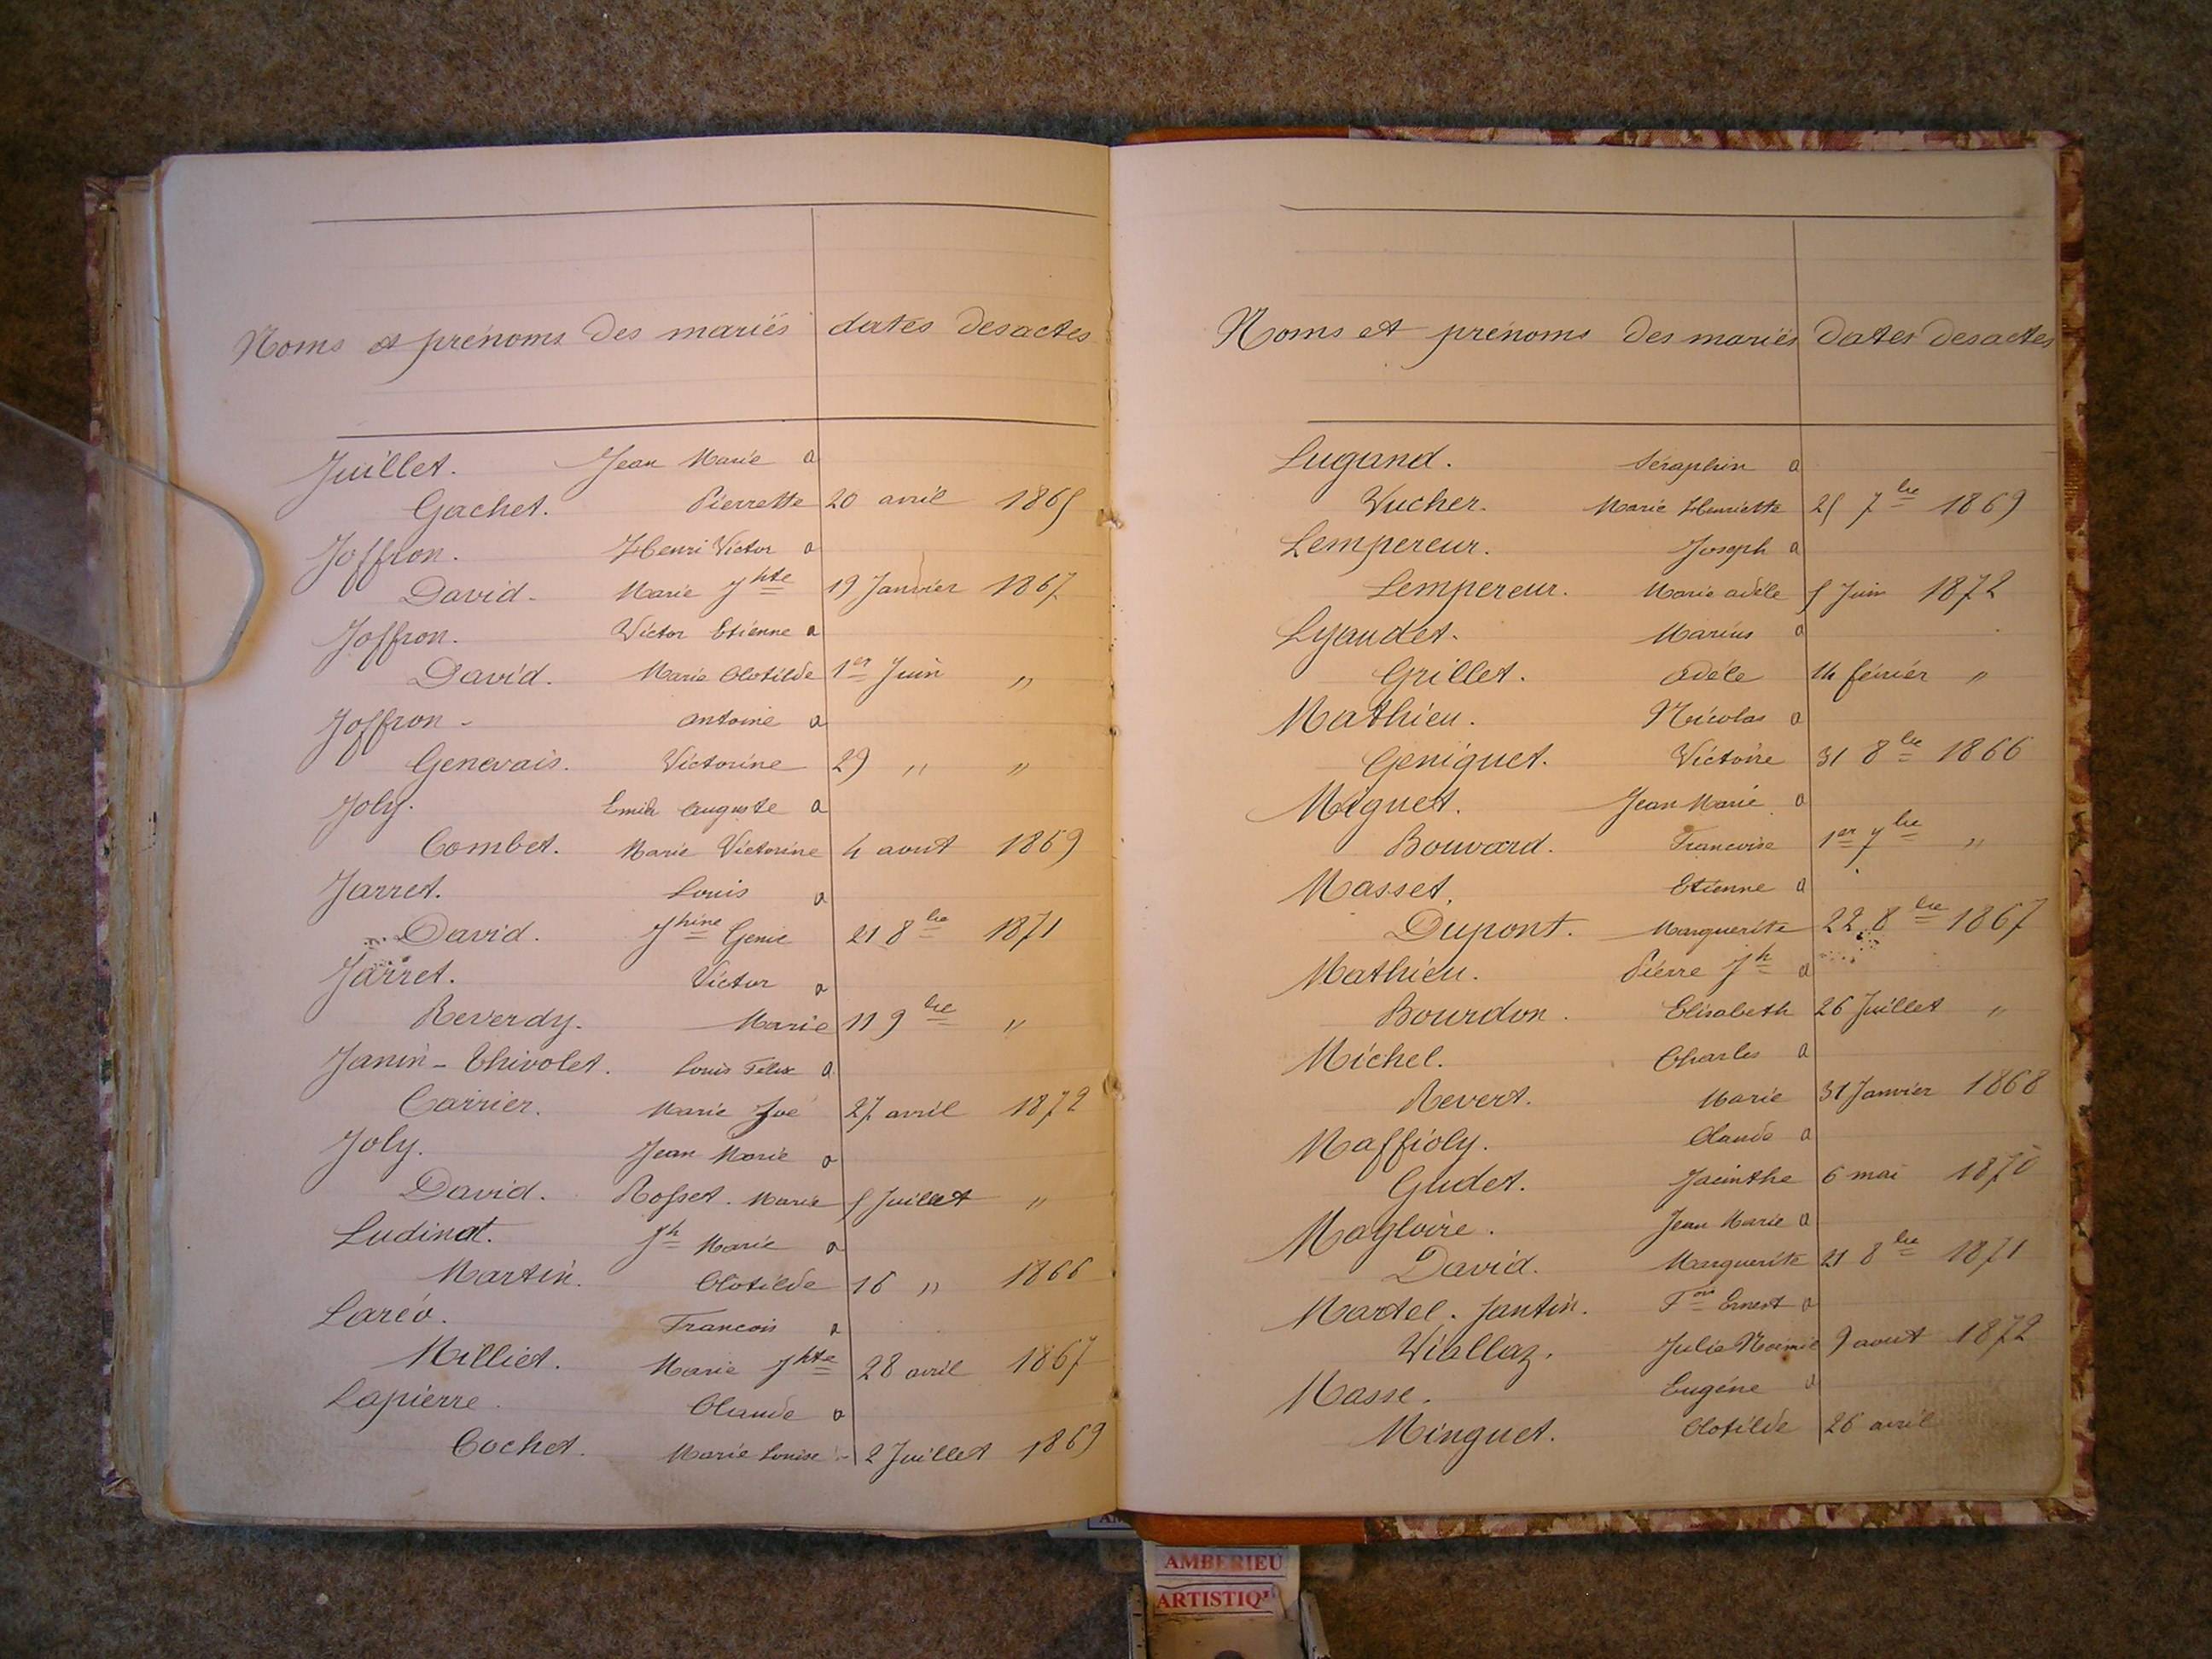 Noms et prénoms des mariés dates des actes
Juillet. Jean Marie a
Gachet. Pierrette 20 avril 1865
Joffron. Henri Victor a
David. Marie Jhte 19 Janvier 1867
Joffron. Victor Etienne a
David. Marie Clotilde 1er Juin "
Joffron - antoine a
Genevais. Victorine 29 " "
Joly. Emile auguste a
Combet. Marie Victorine 4 aout 1869
Jarret. Louis a
David. Jhine Genie 21 8bre 1871
Jarret. Victor a
Reverdy. Marie 11 9bre "
Janin - Thivolet. Louis Felix a
Carrier. Marie Zoé 27 avril 1872
Joly. Jean Marie a
David. Rosset. Marie 5 Juillet "
Ludinat. Jh Marie a
Martin. Clotilde 16 " 1866
Laréo. Francois a
Milliet. Marie Jhte 28 avril 1867
Lapierre. Claude a
Cochet. Marie Louise 2 Juillet 1869
Noms et prénoms des mariés dates des actes
Lugand. Séraphin a
Vucher. Marie Henriette 25 7bre 1869
Lempereur. Joseph a
Lempereur. Marie adèle 5 Juin 1872
Lyaudet. Marius a
Grillet. adèle 14 février "
Mathieu. Nicolas a
Geniquet. Victoire 31 8bre 1866
Miguet. Jean Marie a
Bouvard. Francoise 1er 7bre "
Masset. Etienne a
Dupont. Marguerite 22 8bre 1867
Mathieu. Pierre Jh a
Bourdon. Elisabeth 26 Juillet "
Michel. Charles a
Revert. Marie 31 Janvier 1868
Maffioly. Claude a
Gudet. Jacinthe 6 mai 1870
Magloire. Jean Marie a
David. Marguerite 21 8bre 1871
Martel. Jantin. Fois Ernest a
Viallaz. Julie Noémie 9 aout 1872
Masse. Eugène a
Minguet. Clotilde 26 avril
AMBERIEU